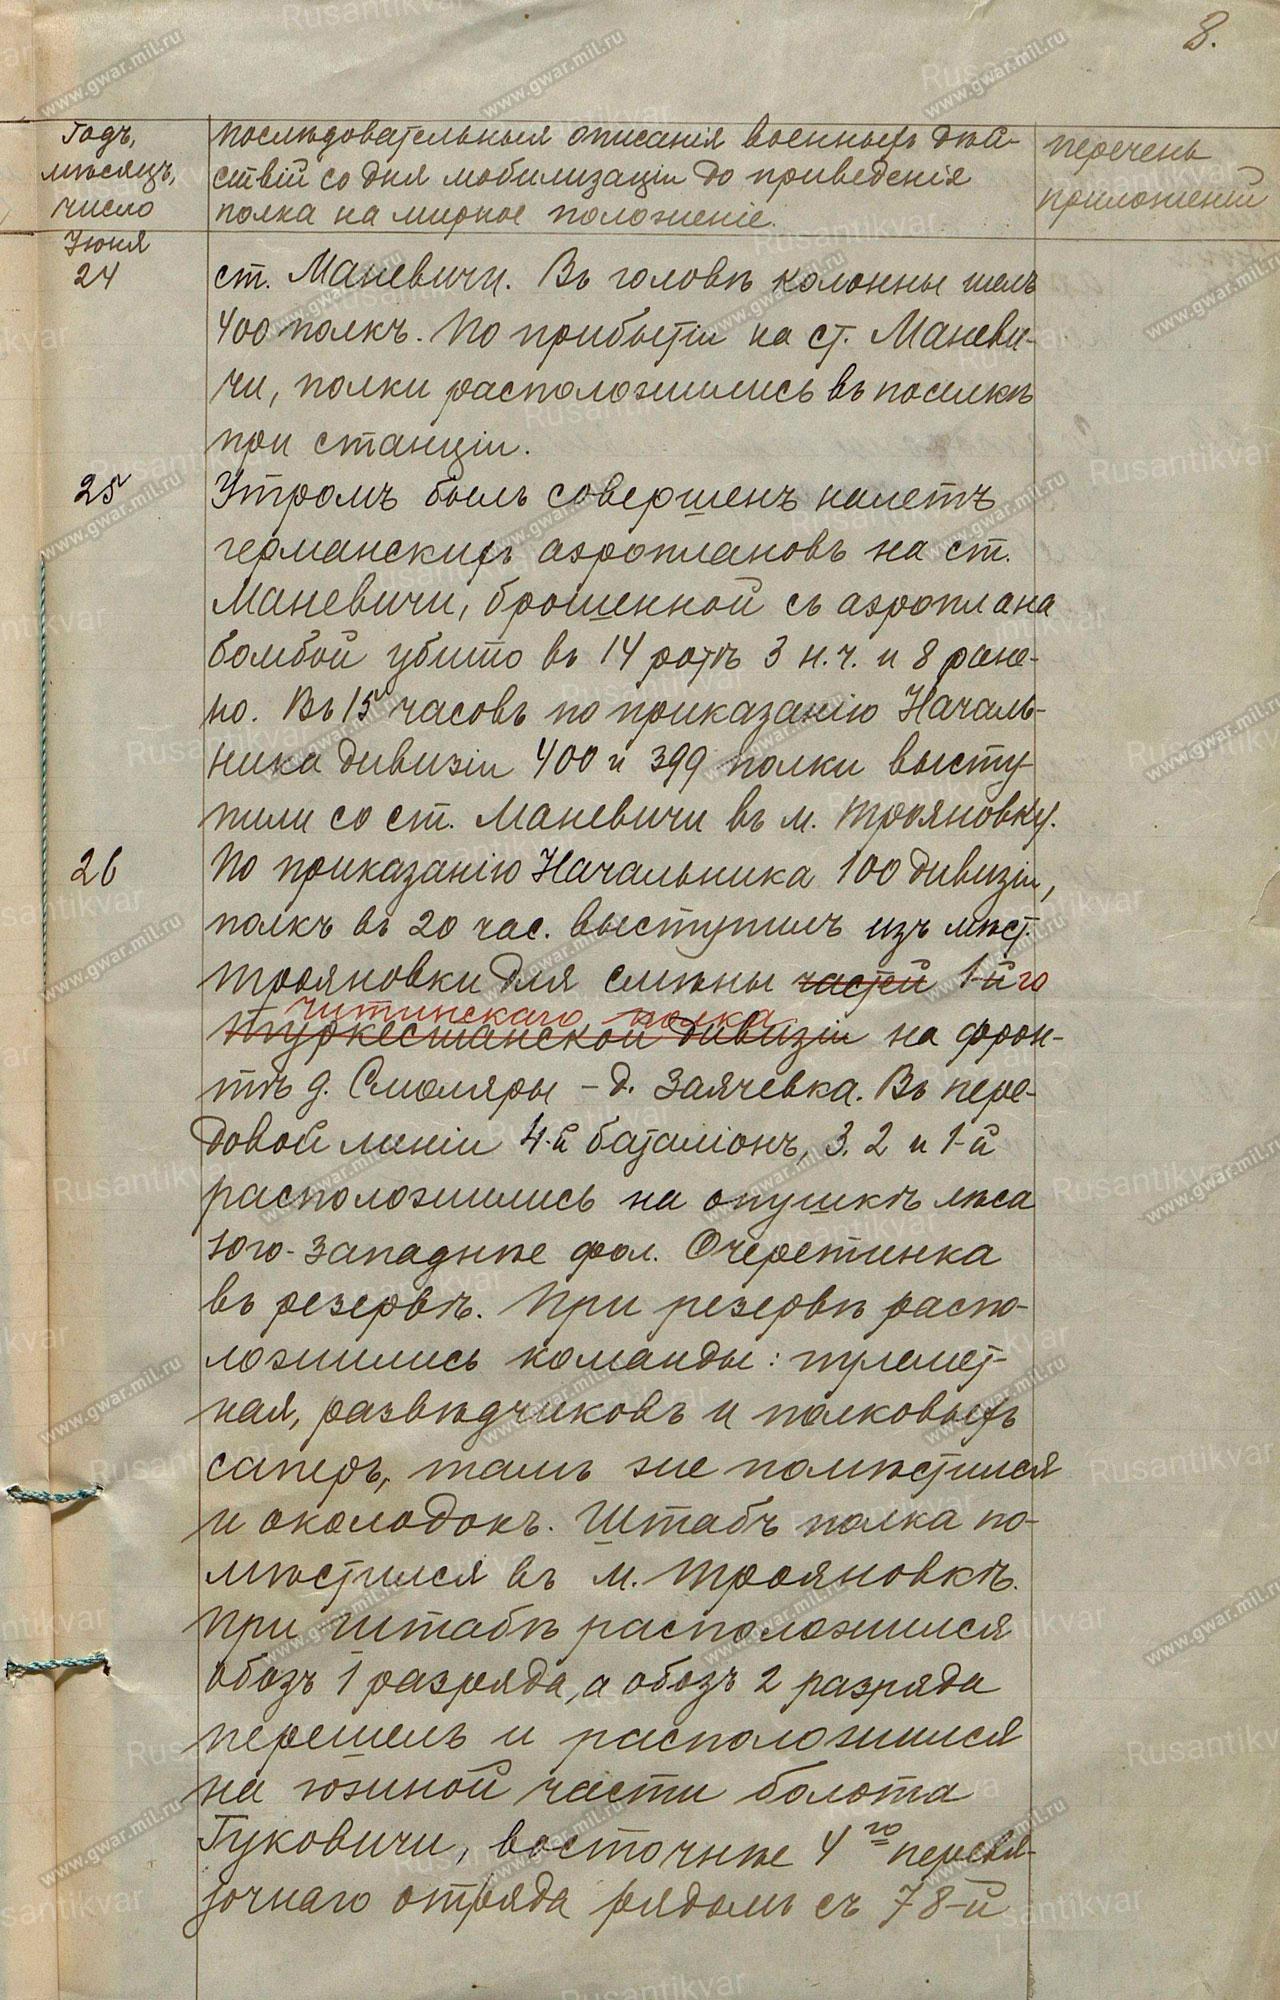 8.
Годъ,
мѣсяцъ,
число
послѣдовательныя описанія военныхъ дѣй-
ствій со дня мобилизаціи до приведенія
полка на мирное положеніе.
перечень
приложеній
Іюня
24
ст. Маневичи. Въ головѣ колонны шелъ
400 полкъ. По прибытіи на ст. Маневи-
чи, полки расположились въ поселкѣ
при станціи.
25
Утромъ былъ совершенъ налетъ
германскихъ аэроплановъ на ст.
Маневичи, брошенной съ аэроплана
бомбой убито въ 14 ротѣ 3 н.ч. и 8 ране-
но. Въ 15 часовъ по приказанію Началь-
ника дивизіи 400 и 399 полки высту-
пили со ст. Маневичи въ м. Трояновку.
26
По приказанію Начальника 100 дивизіи,
полкъ въ 20 час. выступилъ изъ мѣст.
Трояновки для смѣны частей 1-й го
Читинскаго полка
Туркестанской дивизіи на фрон-
тѣ д. Смоляры – д. Заячевка. Въ пере-
довой линіи 4-й баталіонъ, 3, 2 и 1-й
расположились на опушкѣ лѣса
юго-западнѣе фол. Очеретинка
въ резервѣ. При резервѣ распо-
ложились команды: пулемет-
ная, развѣдчиковъ и полковыхъ
саперъ, тамъ же помѣстился
и околодокъ. Штабъ полка по-
мѣстился въ м. Трояновкѣ.
При штабѣ расположился
обозъ 1 разряда, а обозъ 2 разряда
перешелъ и расположился
на южной части болота
Гуковичи, восточнѣе 4го перевя-
зочнаго отряда рядомъ съ 78-й